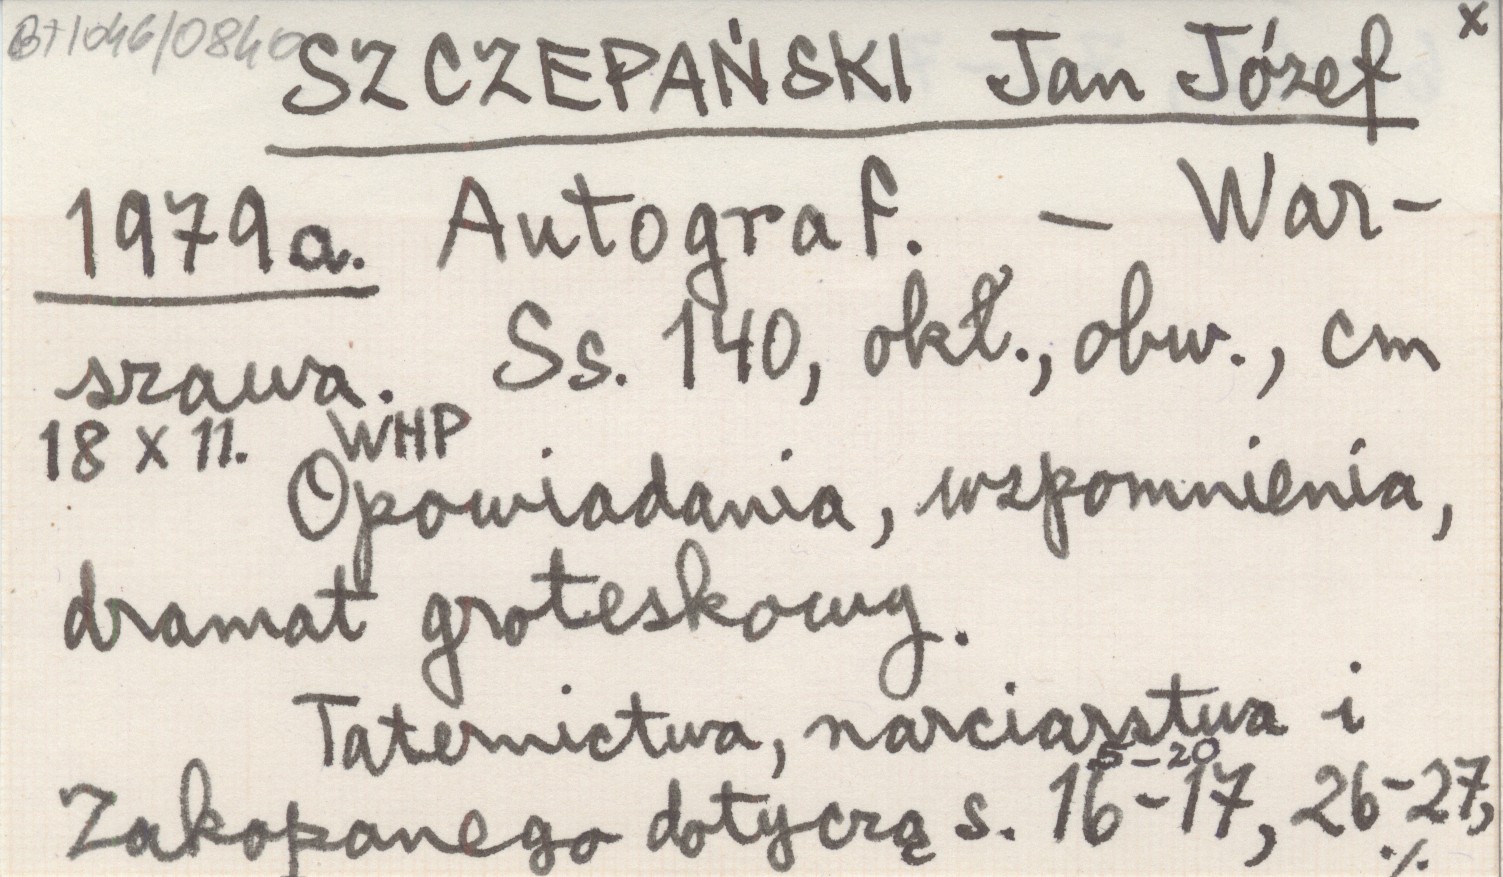 B7/046/0840
SZCZEPAŃSKI Jan Józef x
1979a. Autograf. – War-
szawa. Ss. 140, okł., obw., cm
18 x 11. WHP
Opowiadania, wspomnienia,
dramat groteskowy.
Taternictwa, narciarstwa i
5-20
Zakopanego dotyczą s. 16-17, 26-27,
./.